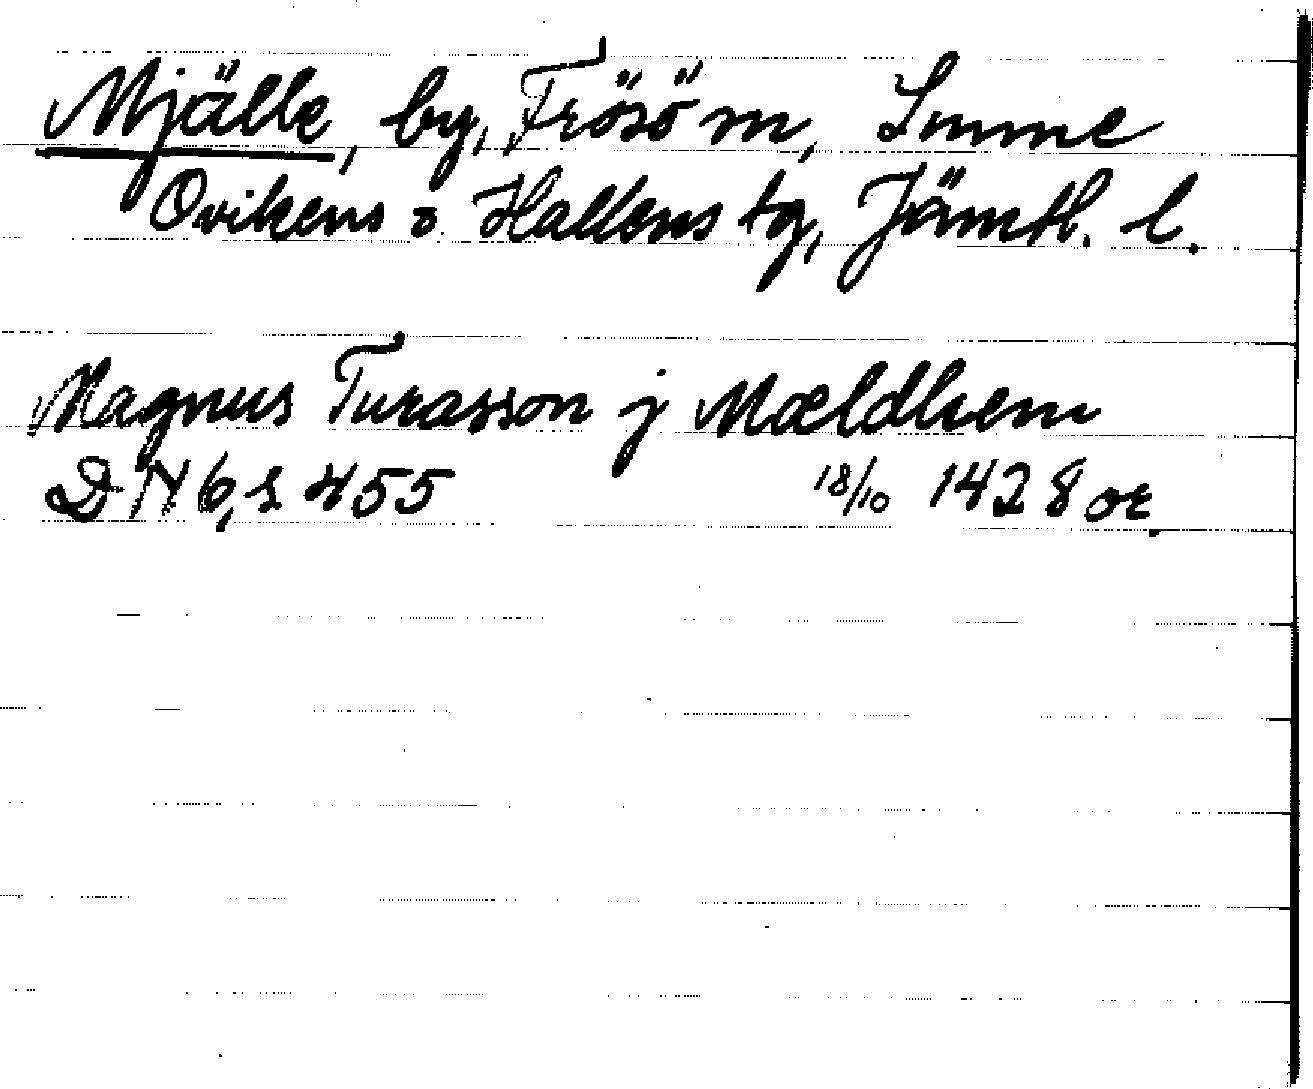 Mjälle, by, Frösö sn, Sunne
Ovikens o. Hallens tg, Jämtl. l.
Magnus Turasson j Mældhem
DN 6, s 455 18/10 1428 or.